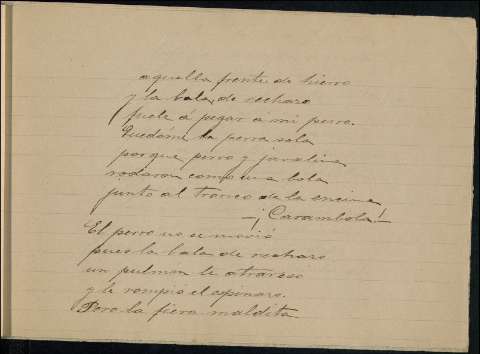 aquella frente de hierro
y la bala, de rechazo
fuele á pegar á mi perro.
Quedóme la perra sola
porque perro y jabalina
rodaron como una bola
junto al tronco de la encina
—¡Carambola!—
El perro no se movió
pues la bala de rechazo
un pulmon le atravesó
y le rompió el espinazo.
Pero la fiera maldita